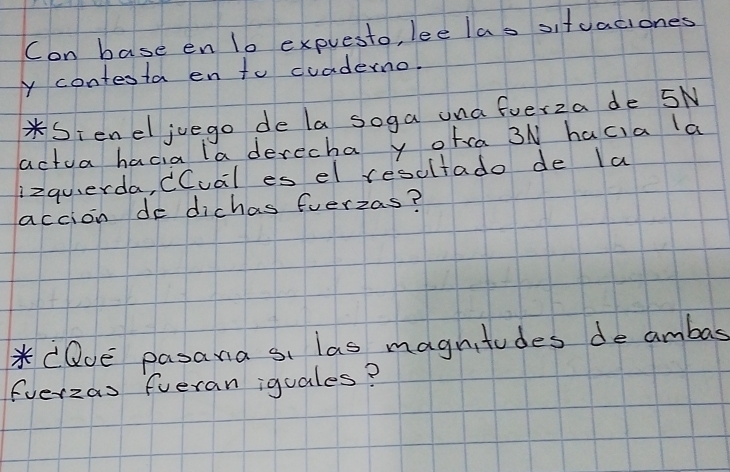 Con base en lo expuesto, lee las situaciones
y contesta en tu cuaderno.
*Si en el juego de la soga una fuerza de 5N
actua hacia la derecha y otra 3N hacia la
izquierda, ¿Cuál es el resultado de la
acción de dichas fuerzas?
* ¿Qué pasaria si las magnitudes de ambas
fuerzas fueran iguales?